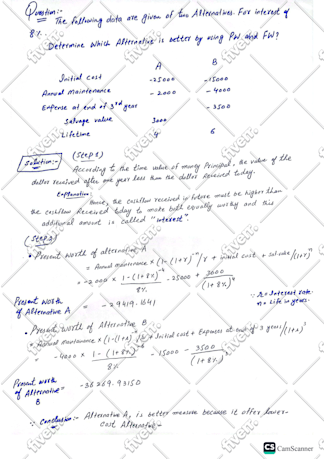 Question:- The following data are given of two Alternatives. For interest of
8%.
Determine which Alternative is better by using PW and FW?
A B
Initial cost -25000 -15000
Annual Maintenance -2000 -4000
Expense at end of 3rd year -3500
Salvage value 3000
Lifetime 4 6
Solution:- (Step 1)
According to the time value of money Principal, the value of the
dollar received after one year less than the dollar received today.
Explanation:
Hence, the cashflow received in future must be higher than
the cashflow received today to make both equally worthy and this
additional amount is called "interest".
(Step 2)
• Present worth of alternative A
= Annual maintenance × (1-(1+r)^-n / r + initial cost + salvage/(1+r)^n
= -2000 × 1-(1+8%)^-4 / 8% - 25000 + 3000 / (1+8%)^4
∵ r = Interest rate.
n = Life in years.
Present worth
of Alternative A = -29419.1641
• Present worth of Alternative B
= Annual maintenance × (1-(1+r)^-n / r + Initial cost + Expenses at end of 3 year/(1+r)^n
= -4000 × 1-(1+8%)^-6 / 8% - 15000 - 3500 / (1+8%)^3
Present worth
of Alternative =
B
-36269.93150
∵ Conclusion:- Alternative A, is better measure because it offer lower-
cost Alternative.
fiverr
CS CamScanner